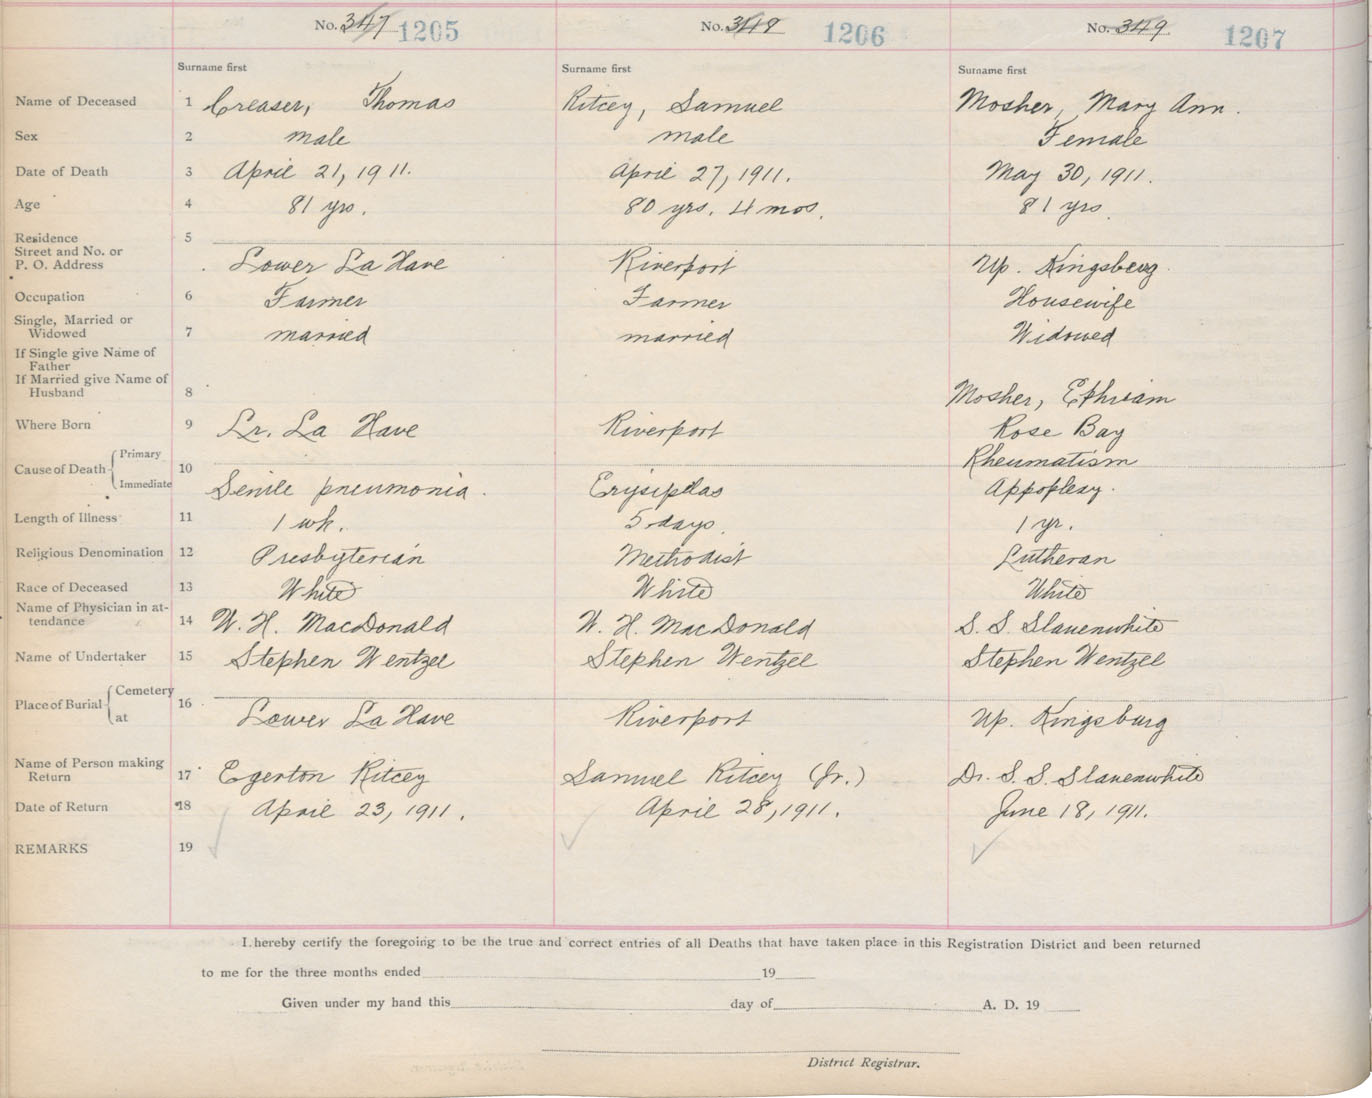 No. 347 1205 No. 348 1206 No. 349 1207
Surname first Surname first Surname first
Name of Deceased 1 Creaser, Thomas Ritcey, Samuel Mosher, Mary Ann.
Sex 2 male male Female
Date of Death 3 April 21, 1911. April 27, 1911. May 30, 1911.
Age 4 81 yrs. 80 yrs. 4 mos. 81 yrs.
Residence 5
Street and No. or
P. O. Address Lower La Have Riverport Up. Kingsberg
Occupation 6 Farmer Farmer Housewife
Single, Married or
Widowed 7 married married Widowed
If Single give Name of
Father
If Married give Name of
Husband 8 Mosher, Ephriam
Where Born 9 Lr. La Have Riverport Rose Bay
Cause of Death Primary 10 Rheumatism
Immediate Senile pneumonia. Erysipelas Appoplexy.
Length of Illness 11 1 wk. 5 days 1 yr.
Religious Denomination 12 Presbyterian Methodist Lutheran
Race of Deceased 13 White White White
Name of Physician in at-
tendance 14 W. H. MacDonald W. H. MacDonald S. S. Slauenwhite
Name of Undertaker 15 Stephen Wentzel Stephen Wentzel Stephen Wentzel
Place of Burial Cemetery 16
at Lower La Have Riverport Up. Kingsburg
Name of Person making
Return 17 Egerton Ritcey Samuel Ritcey (Jr.) Dr. S. S. Slauenwhite
Date of Return 18 April 23, 1911. April 28, 1911. June 18, 1911.
REMARKS 19
I hereby certify the foregoing to be the true and correct entries of all Deaths that have taken place in this Registration District and been returned
to me for the three months ended 19
Given under my hand this day of A. D. 19
District Registrar.